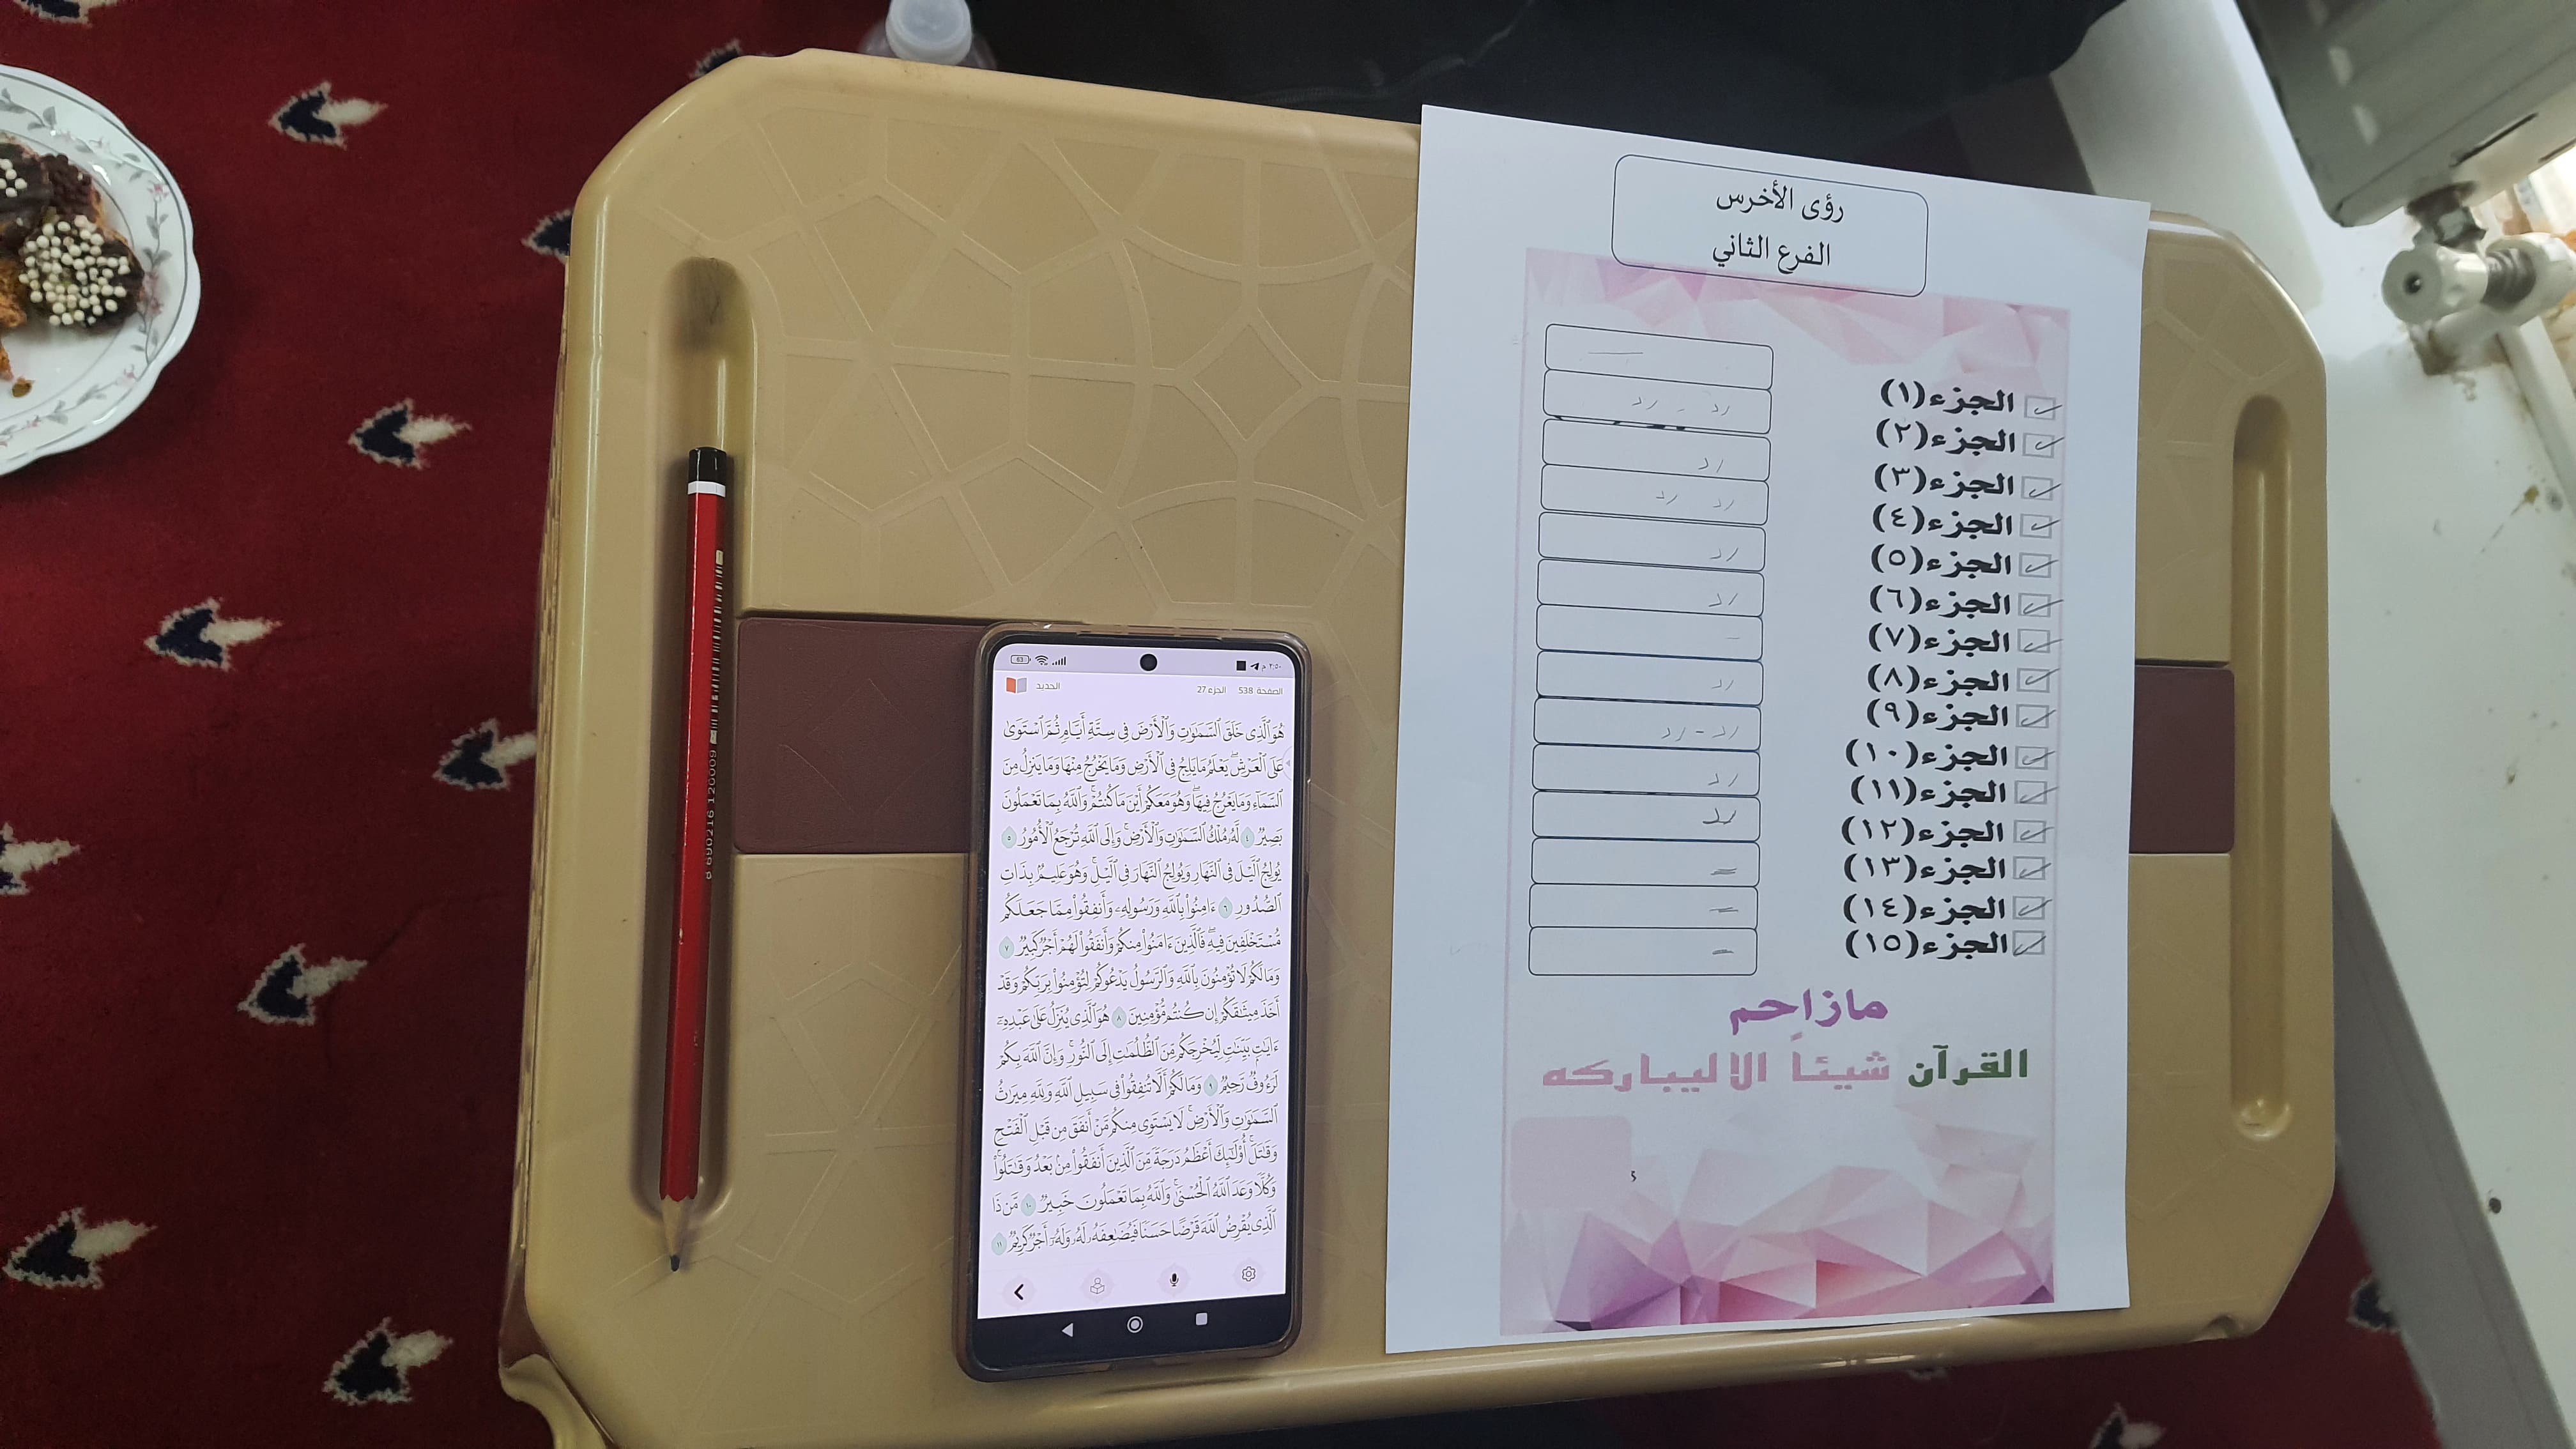 رؤى الأخرس
الفرع الثاني
الجزء (١)
الجزء (٢)
الجزء (٣)
الجزء (٤)
الجزء (٥)
الجزء (٦)
الجزء (٧)
الجزء (٨)
الجزء (٩)
الجزء (١٠)
الجزء (١١)
الجزء (١٢)
الجزء (١٣)
الجزء (١٤)
الجزء (١٥)
رد - رد
رد
رد رد
رد
رد
رد
رد - رد
رد
رد
مازاحم
القرآن شيئاً الا ليباركه
٣:٥٠ م
63
الصفحة 538 الجزء 27 الحديد
هُوَ ٱلَّذِى خَلَقَ ٱلسَّمَٰوَٰتِ وَٱلْأَرْضَ فِى سِتَّةِ أَيَّامٍ ثُمَّ ٱسْتَوَىٰ
عَلَى ٱلْعَرْشِ ۚ يَعْلَمُ مَا يَلِجُ فِى ٱلْأَرْضِ وَمَا يَخْرُجُ مِنْهَا وَمَا يَنزِلُ مِنَ
ٱلسَّمَآءِ وَمَا يَعْرُجُ فِيهَا ۖ وَهُوَ مَعَكُمْ أَيْنَ مَا كُنتُمْ ۚ وَٱللَّهُ بِمَا تَعْمَلُونَ
بَصِيرٌ ٤ لَّهُۥ مُلْكُ ٱلسَّمَٰوَٰتِ وَٱلْأَرْضِ ۚ وَإِلَى ٱللَّهِ تُرْجَعُ ٱلْأُمُورُ ٥
يُولِجُ ٱلَّيْلَ فِى ٱلنَّهَارِ وَيُولِجُ ٱلنَّهَارَ فِى ٱلَّيْلِ ۚ وَهُوَ عَلِيمٌۢ بِذَاتِ
ٱلصُّدُورِ ٦ ءَامِنُوا۟ بِٱللَّهِ وَرَسُولِهِۦ وَأَنفِقُوا۟ مِمَّا جَعَلَكُم
مُّسْتَخْلَفِينَ فِيهِ ۖ فَٱلَّذِينَ ءَامَنُوا۟ مِنكُمْ وَأَنفَقُوا۟ لَهُمْ أَجْرٌ كَبِيرٌ ٧
وَمَا لَكُمْ لَا تُؤْمِنُونَ بِٱللَّهِ ۙ وَٱلرَّسُولُ يَدْعُوكُمْ لِتُؤْمِنُوا۟ بِرَبِّكُمْ وَقَدْ
أَخَذَ مِيثَٰقَكُمْ إِن كُنتُم مُّؤْمِنِينَ ٨ هُوَ ٱلَّذِى يُنَزِّلُ عَلَىٰ عَبْدِهِۦٓ
ءَايَٰتٍۭ بَيِّنَٰتٍ لِّيُخْرِجَكُم مِّنَ ٱلظُّلُمَٰتِ إِلَى ٱلنُّورِ ۚ وَإِنَّ ٱللَّهَ بِكُمْ
لَرَءُوفٌ رَّحِيمٌ ٩ وَمَا لَكُمْ أَلَّا تُنفِقُوا۟ فِى سَبِيلِ ٱللَّهِ وَلِلَّهِ مِيرَٰثُ
ٱلسَّمَٰوَٰتِ وَٱلْأَرْضِ ۚ لَا يَسْتَوِى مِنكُم مَّنْ أَنفَقَ مِن قَبْلِ ٱلْفَتْحِ
وَقَٰتَلَ ۚ أُو۟لَٰٓئِكَ أَعْظَمُ دَرَجَةً مِّنَ ٱلَّذِينَ أَنفَقُوا۟ مِنۢ بَعْدُ وَقَٰتَلُوا۟ ۚ
وَكُلًّا وَعَدَ ٱللَّهُ ٱلْحُسْنَىٰ ۚ وَٱللَّهُ بِمَا تَعْمَلُونَ خَبِيرٌ ١٠ مَّن ذَا
ٱلَّذِى يُقْرِضُ ٱللَّهَ قَرْضًا حَسَنًا فَيُضَٰعِفَهُۥ لَهُۥ وَلَهُۥٓ أَجْرٌ كَرِيمٌ ١١